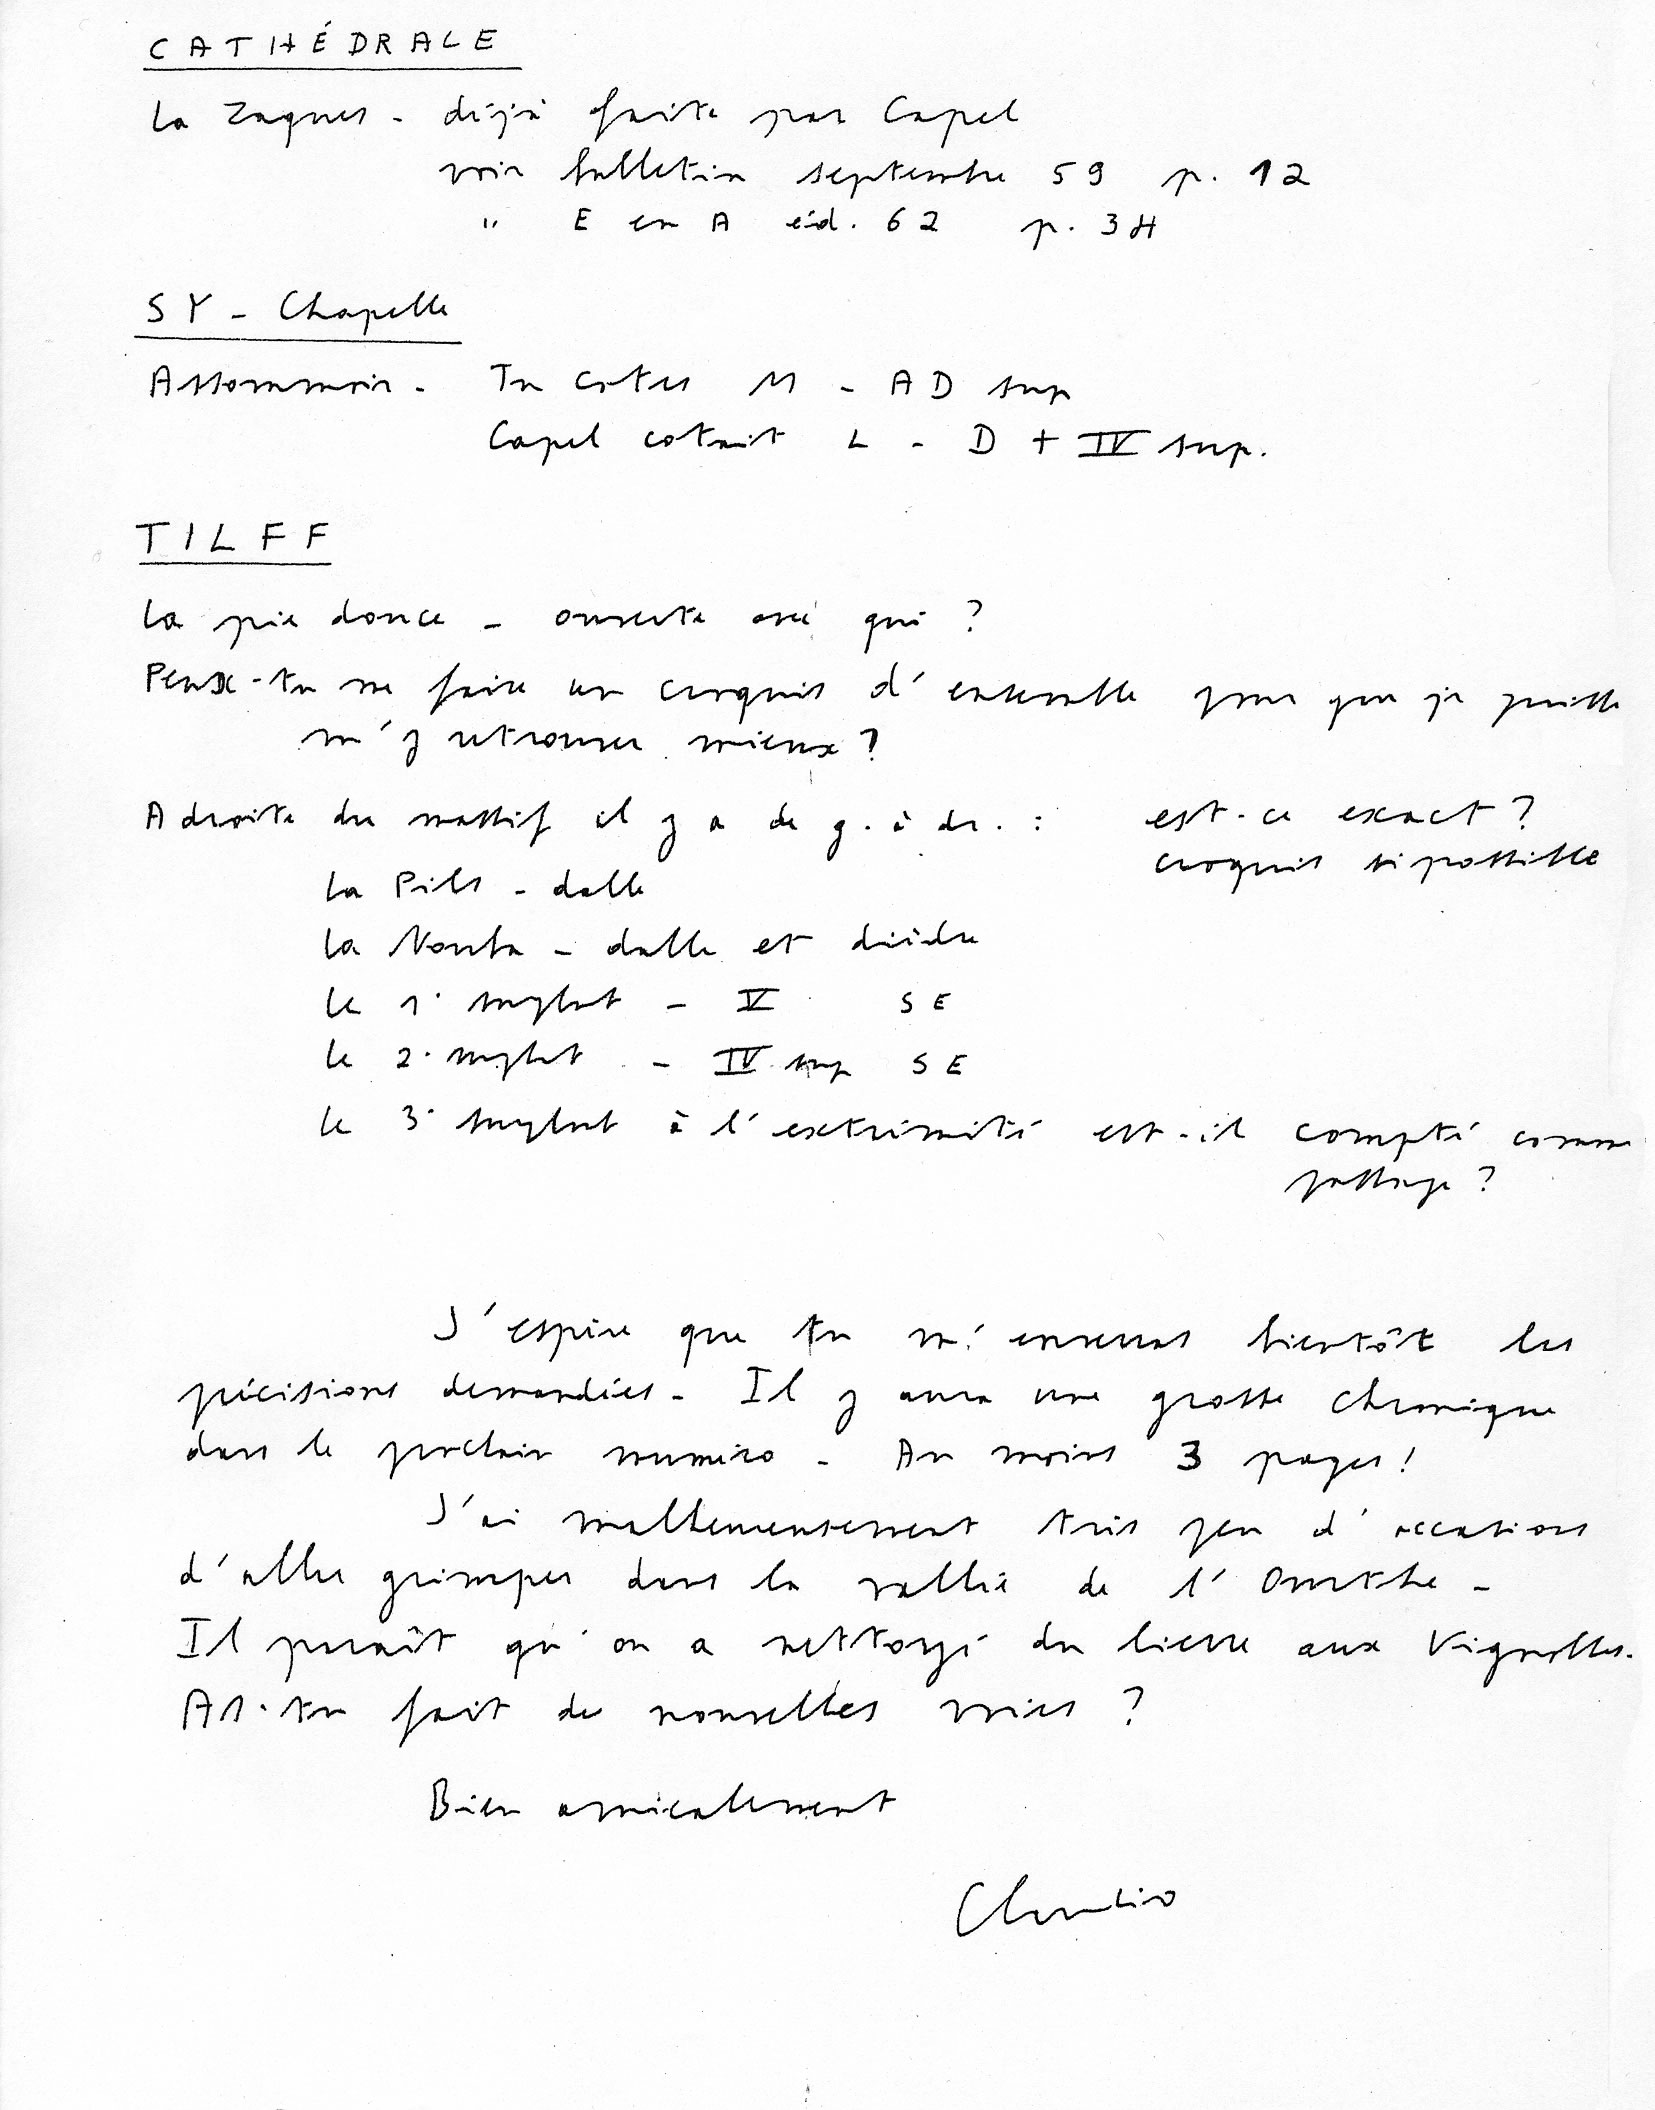 CATHÉDRALE
La Zaques - déjà faite par Capel
voir bulletin septembre 59 p. 12
" E en A éd. 62 p. 34
SY - Chapelle
Assommoir - Tu cotes M - AD sup
Capel cotait L - D + IV sup.
TILFF
La pie douce - ouverte avec qui ?
Peux-tu me faire un croquis d'ensemble pour que je puisse
m'y retrouver mieux ?
A droite du massif il y a de g. à dr. : est-ce exact ?
croquis si possible
La Pils - dalle
La Nouba - dalle et dièdre
le 1° surplomb - V SE
le 2° surplomb - IV sup SE
le 3° surplomb à l'extrémité est-il compté comme
passage ?
J'espère que tu m'enverras bientôt les
précisions demandées - Il y aura une grosse chronique
dans le prochain numéro - Au moins 3 pages !
J'ai malheureusement très peu d'occasions
d'aller grimper dans la vallée de l'Ourthe -
Il paraît qu'on a nettoyé du lierre aux Vignobles.
As-tu fait de nouvelles voies ?
Bien amicalement
Claudio